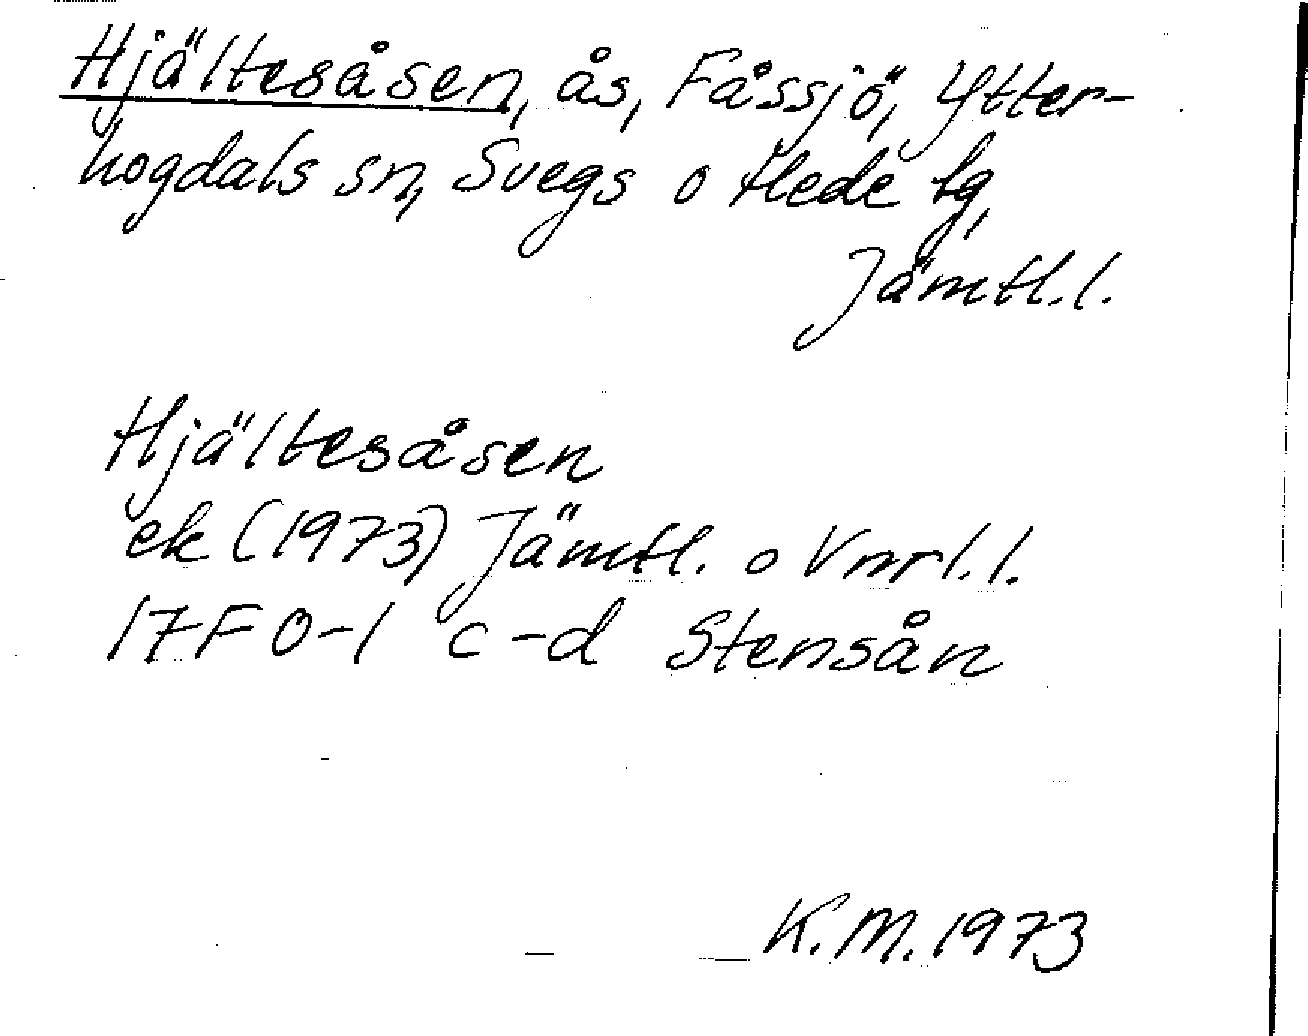 Hjältesåsen, ås, Fåssjö, Ytter-
hogdals sn, Svegs o Hede tg,
Jämtl.l.
Hjältesåsen
ek (1973) Jämtl. o Vnrl.l.
17F 0-1 c-d Stensån
K.M. 1973